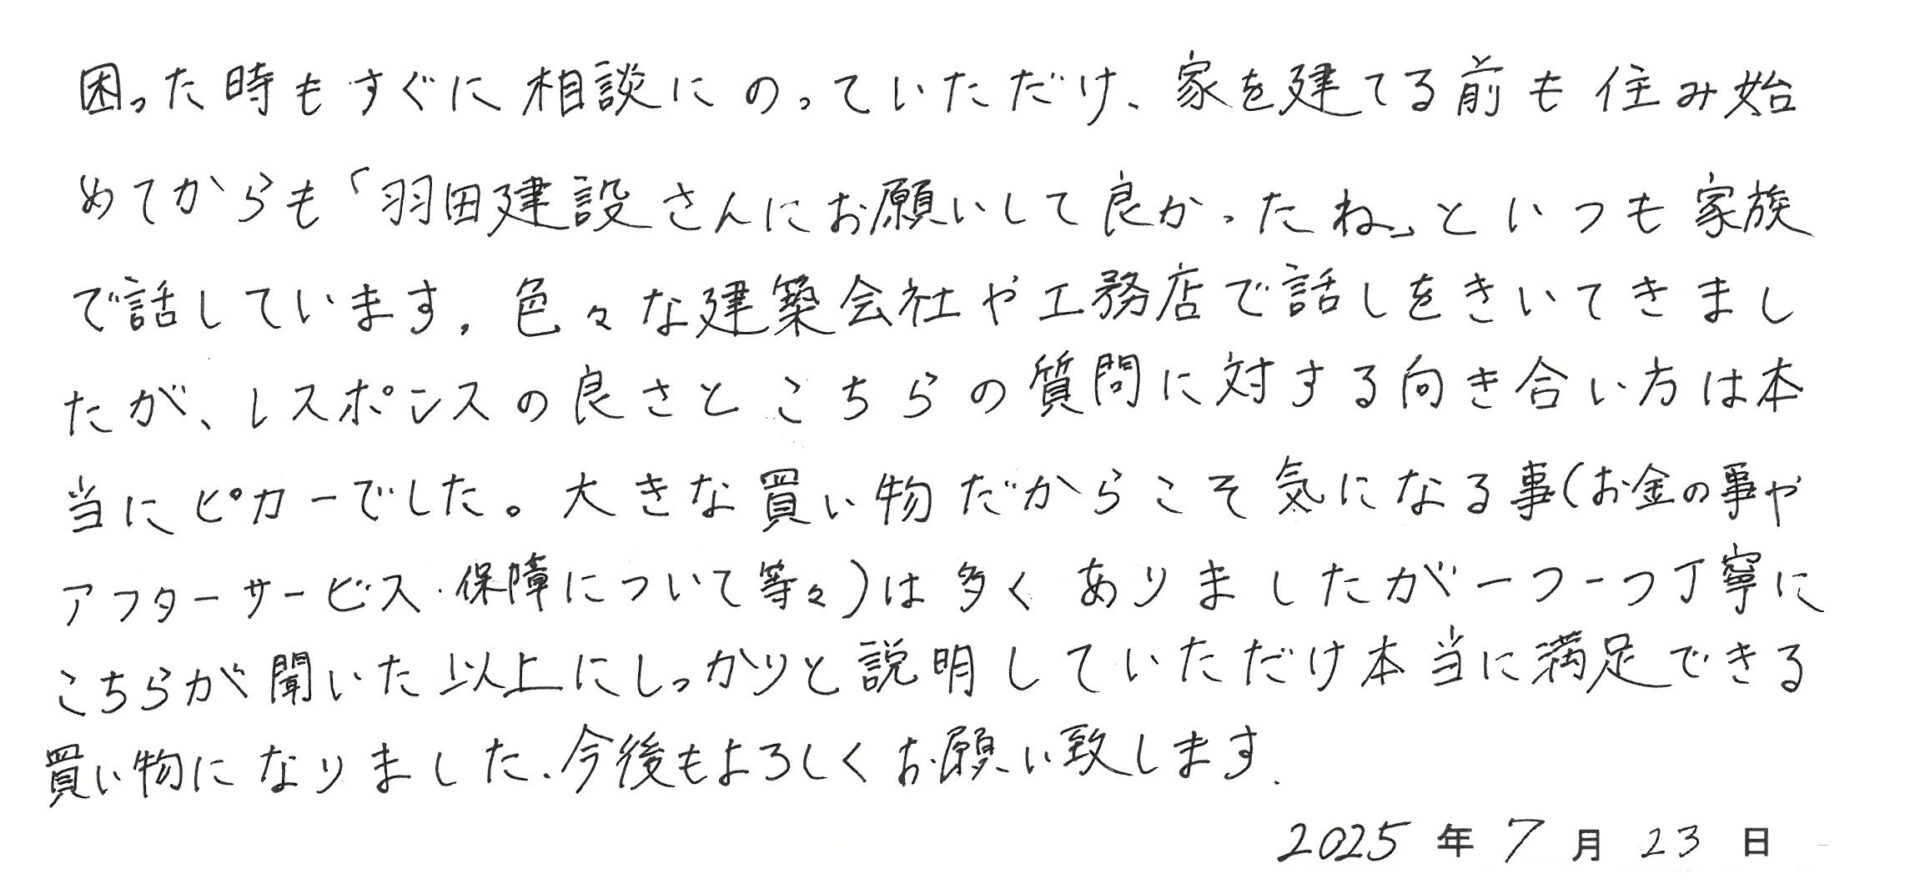 困った時もすぐに相談にのっていただけ、家を建てる前も住み始
めてからも「羽田建設さんにお願いして良かったね」といつも家族
で話しています。色々な建築会社や工務店で話しをきいてきまし
たが、レスポンスの良さとこちらの質問に対する向き合い方は本
当にピカ一でした。大きな買い物だからこそ気になる事(お金の事や
アフターサービス・保障について等々)は多くありましたが一つ一つ丁寧に
こちらが聞いた以上にしっかりと説明していただけ本当に満足できる
買い物になりました。今後もよろしくお願い致します。
2025年7月23日